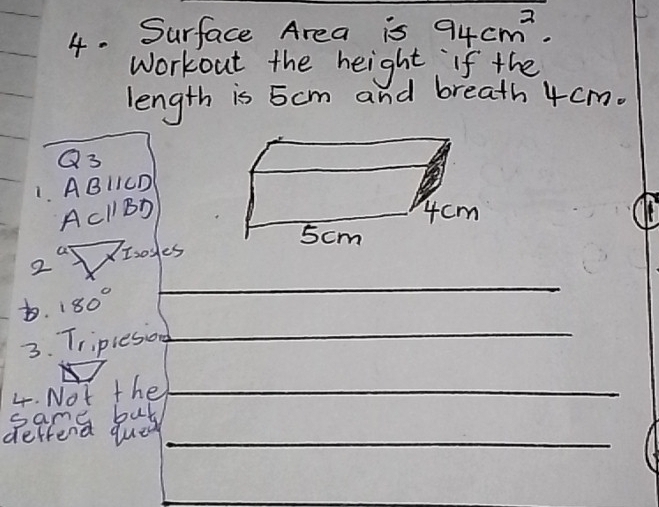 4. Surface Area is 94cm².
Workout the height if the
length is 5cm and breath 4cm.
4cm
5cm
Q3
1. AB||CD
AC||BD
2 a
b. 180°
3.
4. Not the
same but